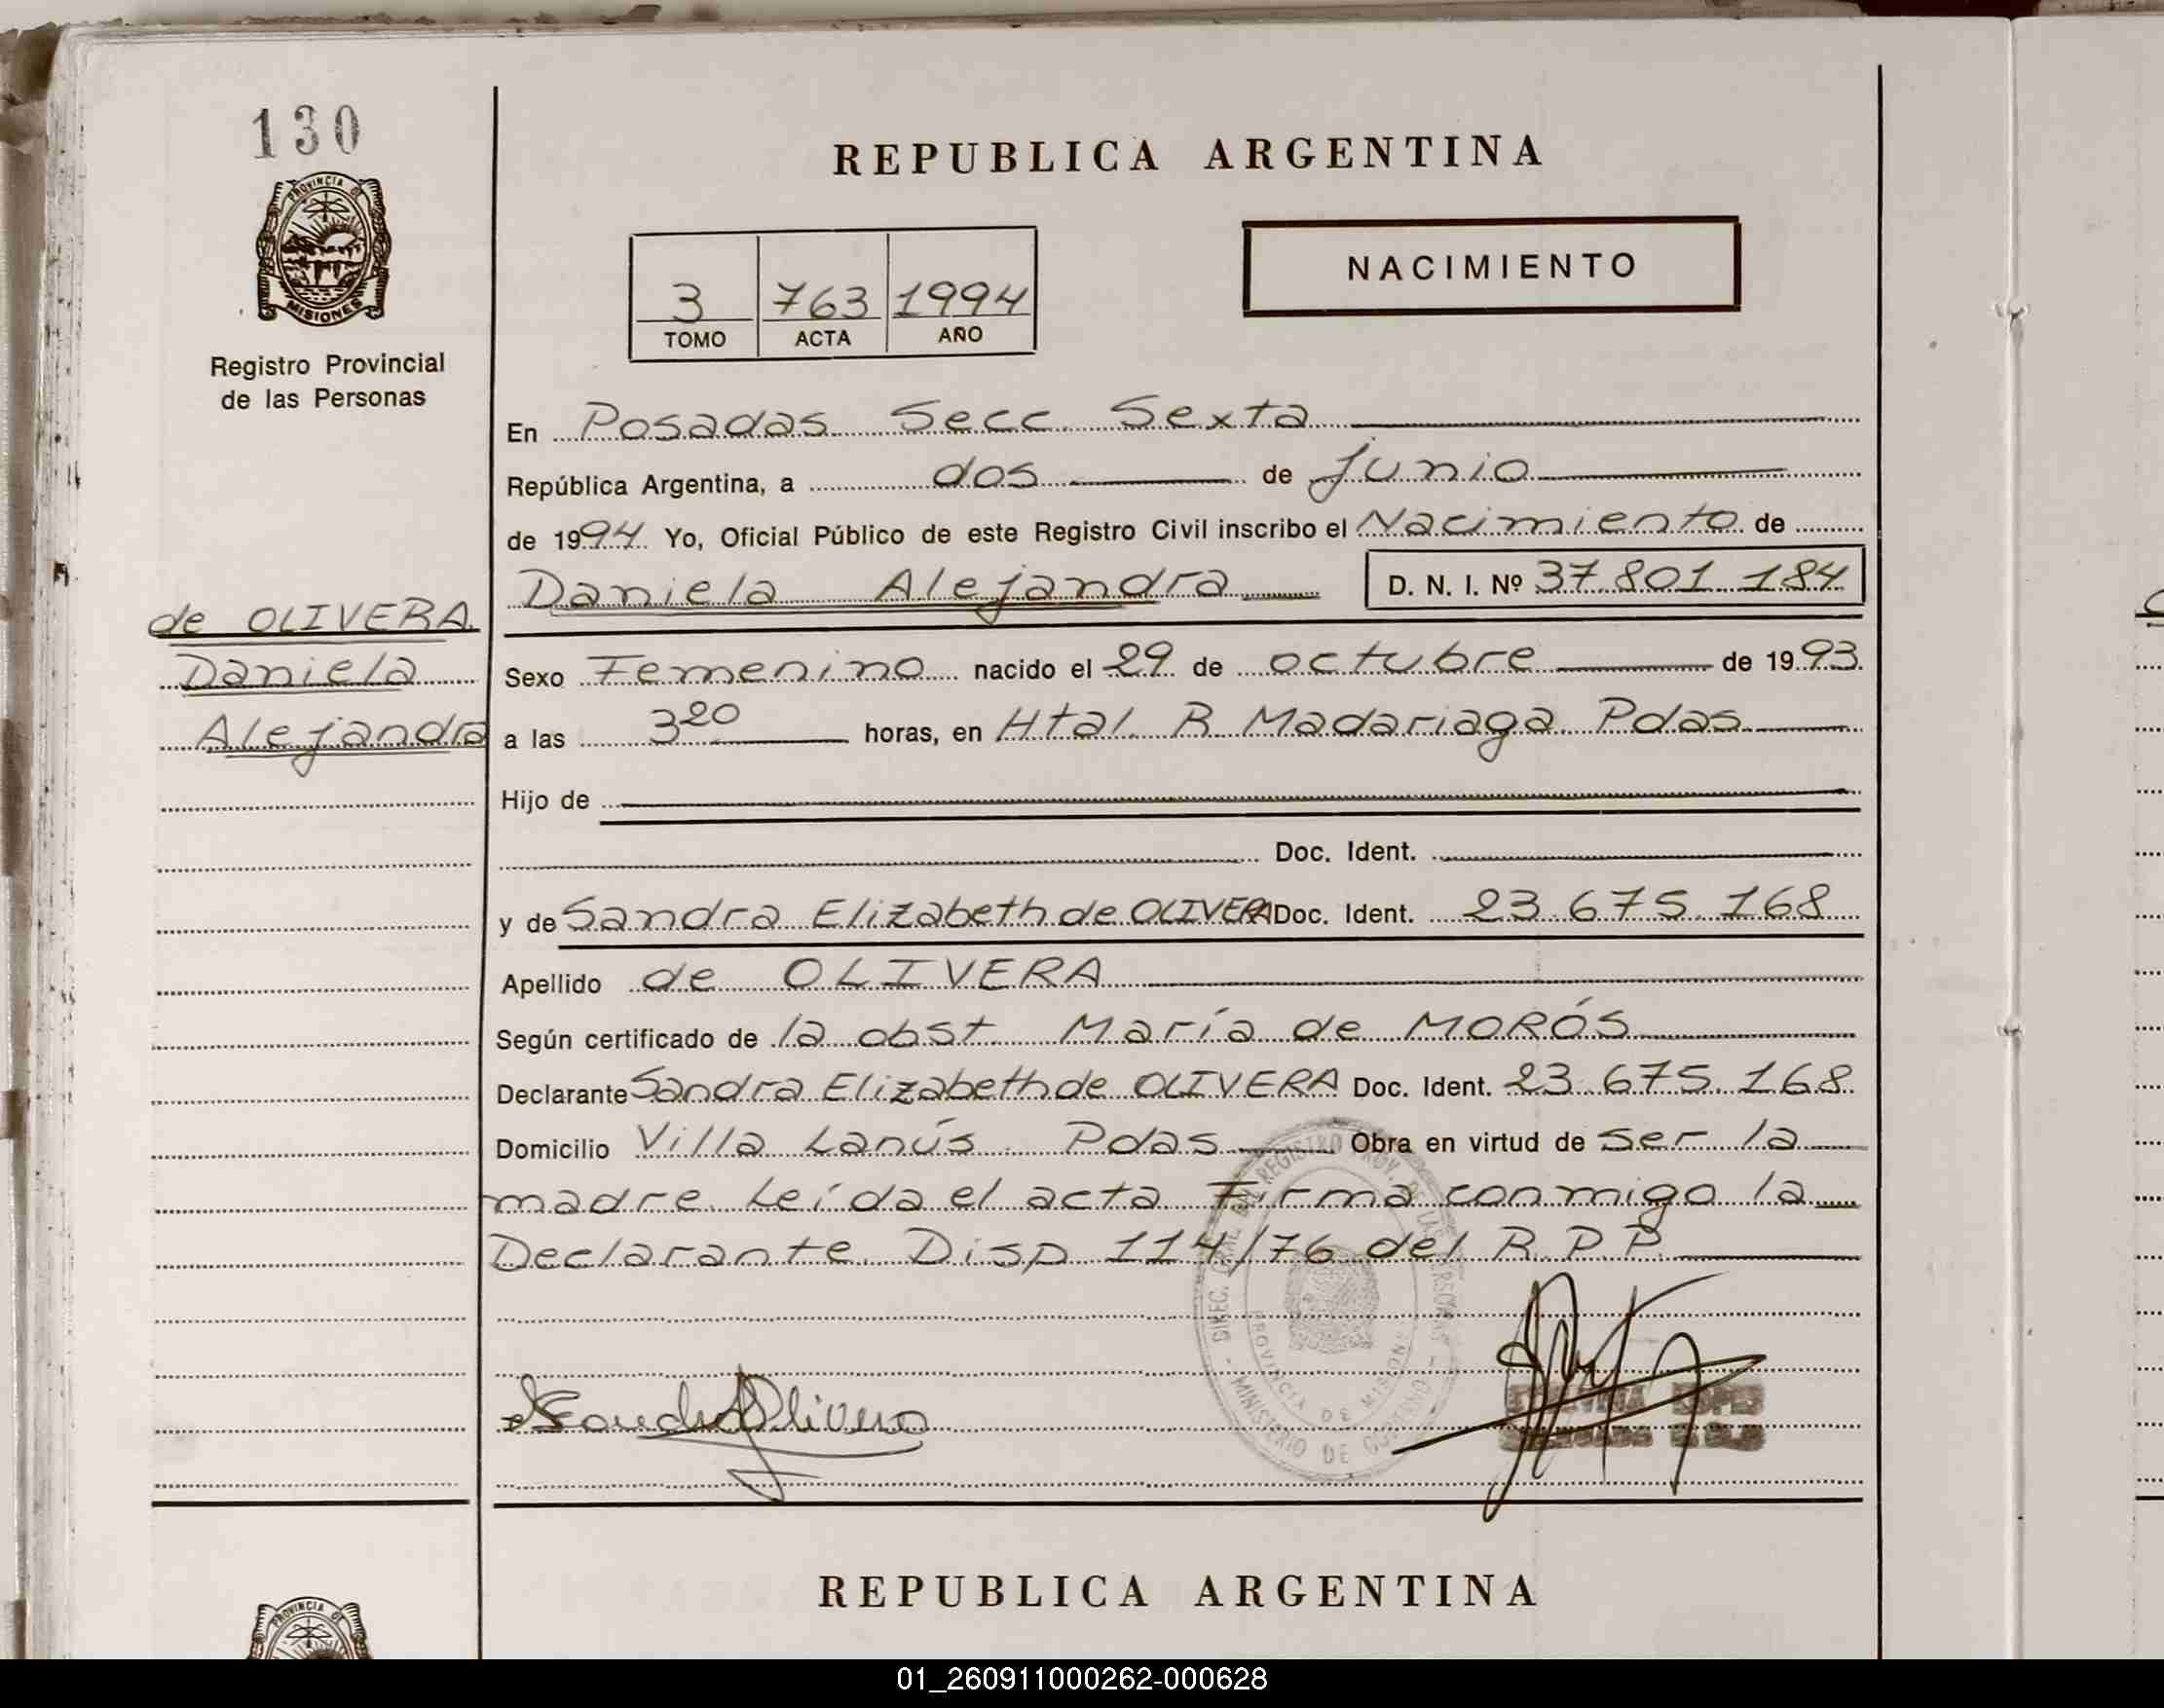 130
REPUBLICA ARGENTINA
PROVINCIA DE
MISIONES
NACIMIENTO
3 763 1994
TOMO ACTA AÑO
Registro Provincial
de las Personas
En Posadas Secc. Sexta
República Argentina, a dos de Junio
de 1994 Yo, Oficial Público de este Registro Civil inscribo el Nacimiento de
Daniela Alejandra D. N. I. Nº 37.801.184
de OLIVERA
Daniela
Alejandra
Sexo Femenino nacido el 29 de octubre de 1993
a las 3 20 horas, en Htal. R Madariaga Pdas
Hijo de
Doc. Ident.
y de Sandra Elizabeth de OLIVERA Doc. Ident. 23.675.168
Apellido de OLIVERA
Según certificado de la obst. María de MORÓS
Declarante Sandra Elizabeth de OLIVERA Doc. Ident. 23.675.168
Domicilio Villa Lanús Pdas Obra en virtud de ser la
madre. Leída el acta Firma conmigo la
Declarante. Disp 114/76 del R.P.P.
DIREC. GRAL. DEL REGISTRO PROV. DE LAS PERSONAS
PROVINCIA DE MISIONES
MINISTERIO DE GOBIERNO
REPUBLICA ARGENTINA
PROVINCIA DE
01_260911000262-000628